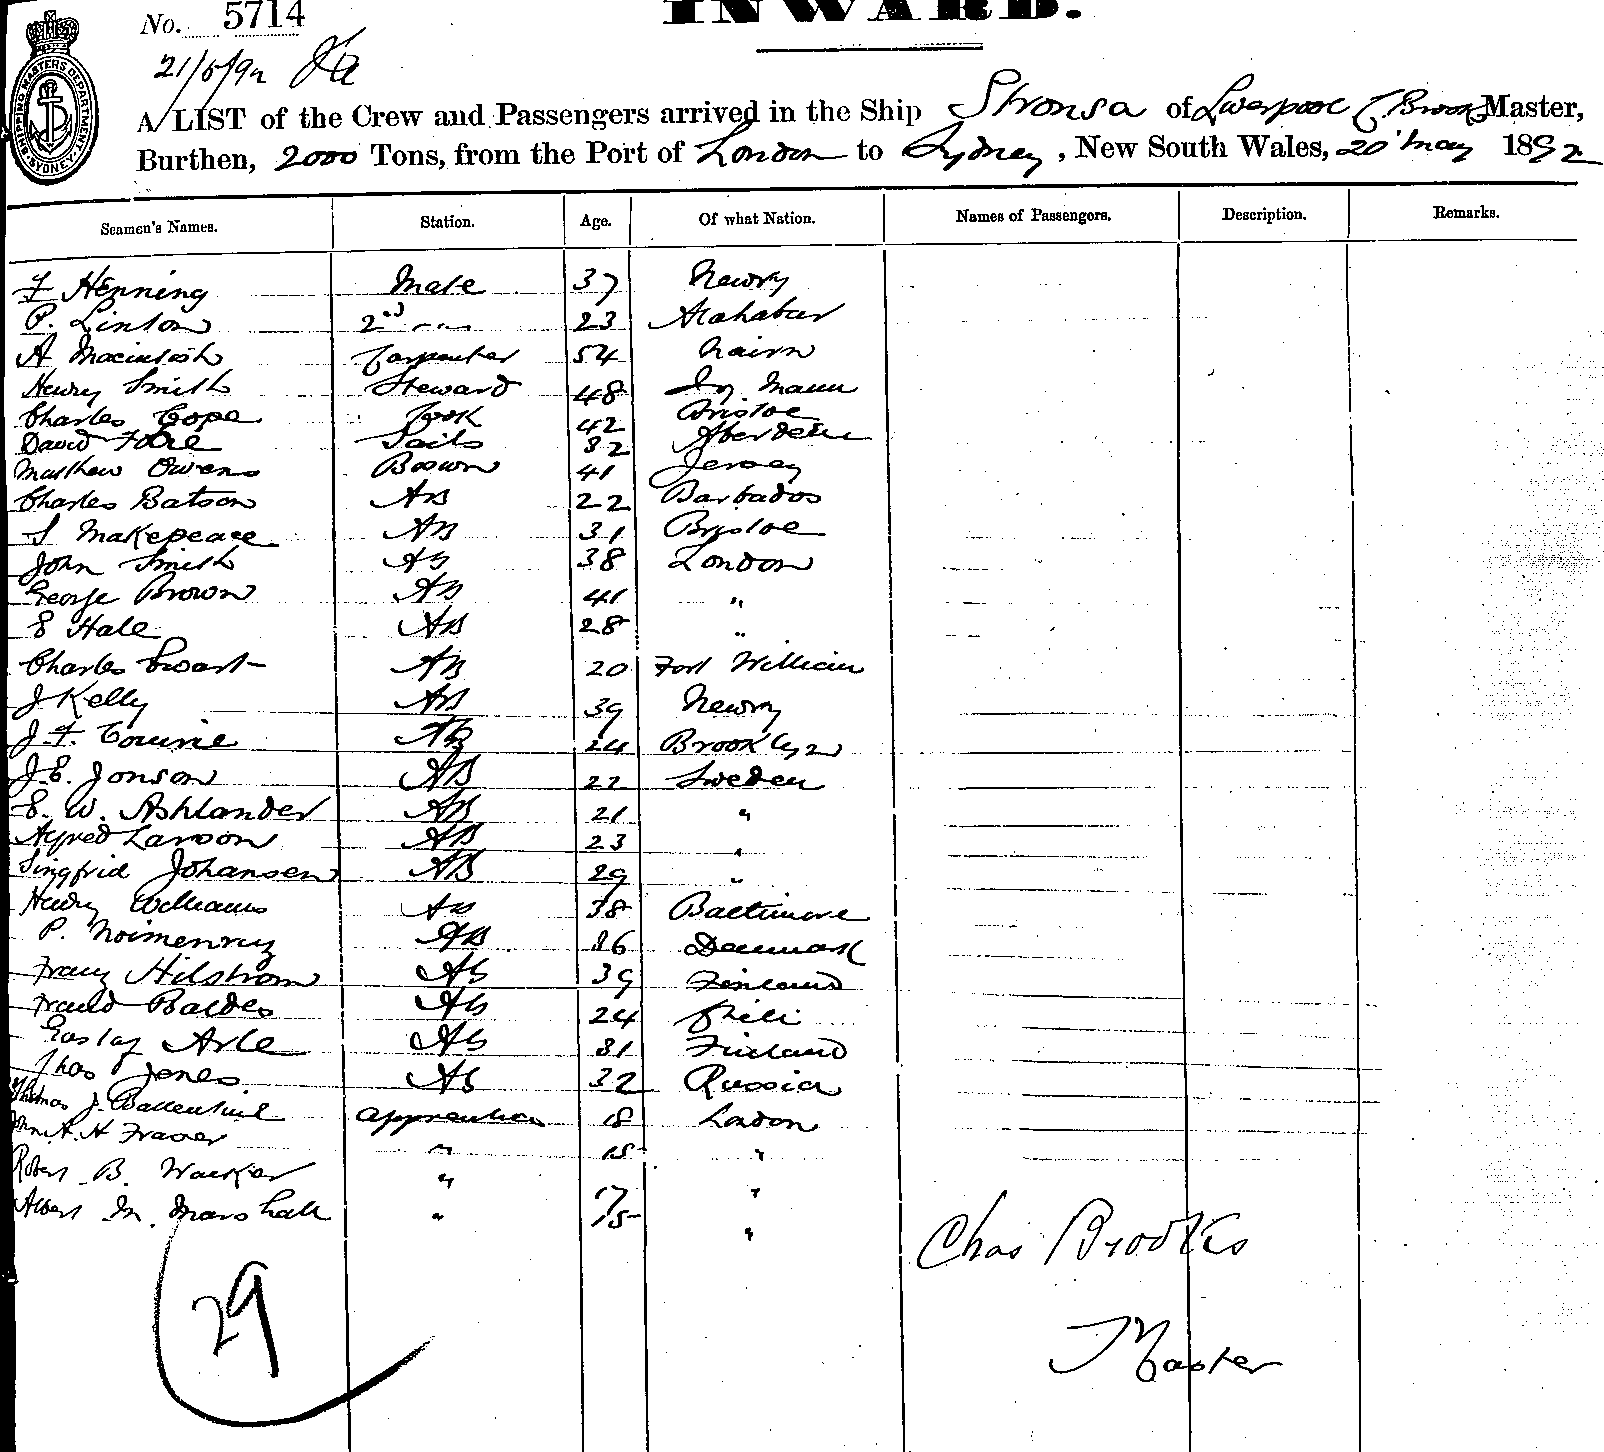 No. 5714
INWARD.
21/5/92
SHIPPING MASTERS DEPARTMENT SYDNEY
A LIST of the Crew and Passengers arrived in the Ship Stronsa of Liverpool C Brooks Master,
Burthen, 2000 Tons, from the Port of London to Sydney, New South Wales, 20 May 1892
Seamen's Names. Station. Age. Of what Nation. Names of Passengers. Description. Remarks.
F Henning Mate 37 Newry
P. Linton 2nd " 23 Alahabad
A Macintosh Carpenter 54 Nairn
Henry Smith Steward 48 Iy. Mann
Charles Cope Cook 42 Bristol
David Sails 32 Aberdeen
Matthew Owens Bosun 41 Jersey
Charles Batson AB 22 Barbados
S Makepeace AB 31 Bristol
John Smith AB 38 London
George Brown AB 41 "
E Hale AB 28 "
Charles Ewart AB 20 Fort William
J Kelly AB 39 Newry
J. F. Courine AB 24 Brooklyn
J. E. Jonson AB 22 Sweden
E. W. Ashlander AB 21 "
Alfred Larson AB 23 "
Singfrid Johansen AB 29 "
Henry Williams AB 38 Baltimore
P. AB 36 Denmark
Franz Hilstrom AB 39 Finland
Baldes AB 24 Chili
Gustaf Arle AB 31 Finland
Thos Jones AB 32 Russia
Thomas J. Ballentine apprentice 18 London
Wm A. H Fraser " 15 "
Robert B. Walker " 17 "
Albert M. Marshall " 15 "
Chas Brookes
Master
29